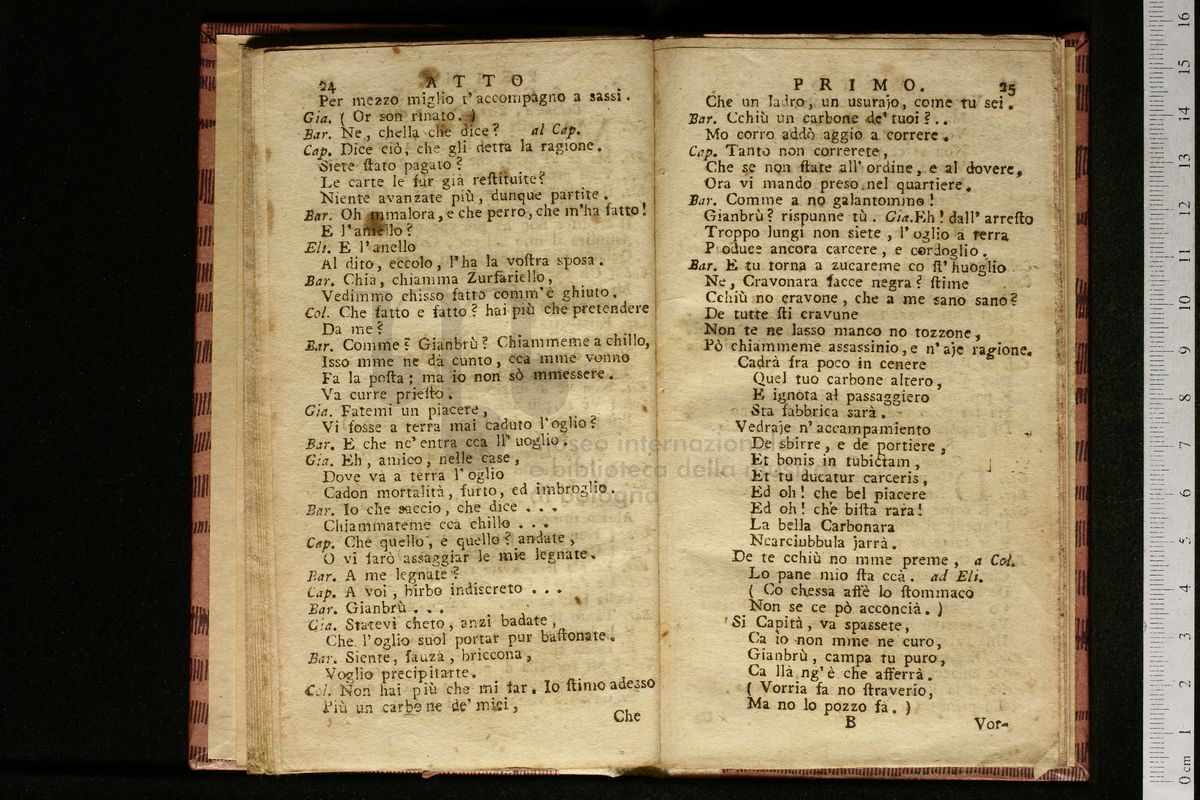 24 ATTO
Per mezzo miglio t'accompagno a sassi.
Gia. ( Or son rinato. )
Bar. Ne, chella che dice? al Cap.
Cap. Dice ciò, che gli detta la ragione.
Siete ſtato pagato?
Le carte le fur già reſtituite?
Niente avanzate più, dunque partite.
Bar. Oh mmalora, e che perro, che m'ha fatto!
E l'aniello?
Eli. E l'anello
Al dito, eccolo, l'ha la voſtra sposa.
Bar. Chia, chiamma Zurfariello,
Vedimmo chisso fatto comm'è ghiuto.
Col. Che fatto e fatto? hai più che pretendere
Da me?
Bar. Comme? Gianbrù? Chiammeme a chillo,
Isso mme ne dà cunto, cca mme vonno
Fa la poſta; ma io non sò mmessere.
Va curre prieſto.
Gia. Fatemi un piacere,
Vi fosse a terra mai caduto l'oglio?
Bar. E che nc'entra cca ll'uoglio.
Gia. Eh, amico, nelle case,
Dove va a terra l'oglio
Cadon mortalità, furto, ed imbroglio.
Bar. Io che saccio, che dice . . .
Chiammateme cca chillo . . .
Cap. Che quello, e quello? andate,
O vi farò assaggiar le mie legnate.
Bar. A me legnate?
Cap. A voi, birbo indiscreto . . .
Bar. Gianbrù . . .
Gia. Statevi cheto, anzi badate,
Che l'oglio suol portar pur baſtonate.
Bar. Siente, fauza, briccona,
Voglio precipitarte.
Col. Non hai più che mi far. Io ſtimo adesso
Più un carbone de' miei,
Che
PRIMO. 25
Che un ladro, un usurajo, come tu sei.
Bar. Cchiù un carbone de' tuoi? . .
Mo corro addò aggio a correre.
Cap. Tanto non correrete,
Che se non ſtate all'ordine, e al dovere,
Ora vi mando preso nel quartiere.
Bar. Comme a no galantomino!
Gianbrù? rispunne tù. Gia. Eh! dall'arreſto
Troppo lungi non siete, l'oglio a terra
Produce ancora carcere, e cordoglio.
Bar. E tu torna a zucareme co ſt'huoglio
Ne, Cravonara facce negra? ſtime
Cchiù no cravone, che a me sano sano?
De tutte ſti cravune
Non te ne lasso manco no tozzone,
Pò chiammeme assassinio, e n'aje ragione.
Cadrà fra poco in cenere
Quel tuo carbone altero,
E ignota al passaggiero
Sta fabbrica sarà.
Vedraje n'accampamiento
De sbirre, e de portiere,
Et bonis in tubictam,
Et tu ducatur carceris,
Ed oh! che bel piacere
Ed oh! che biſta rara!
La bella Carbonara
Ncarciubbula jarrà.
De te cchiù no mme preme, a Col.
Lo pane mio ſta ccà. ad Eli.
( Co chessa affè lo ſtommaco
Non se ce pò acconcià. )
Si Capità, va spassete,
Ca io non mme ne curo,
Gianbrù, campa tu puro,
Ca llà ng'è che afferrà.
( Vorria fa no ſtraverio,
Ma no lo pozzo fà. )
B Vor-